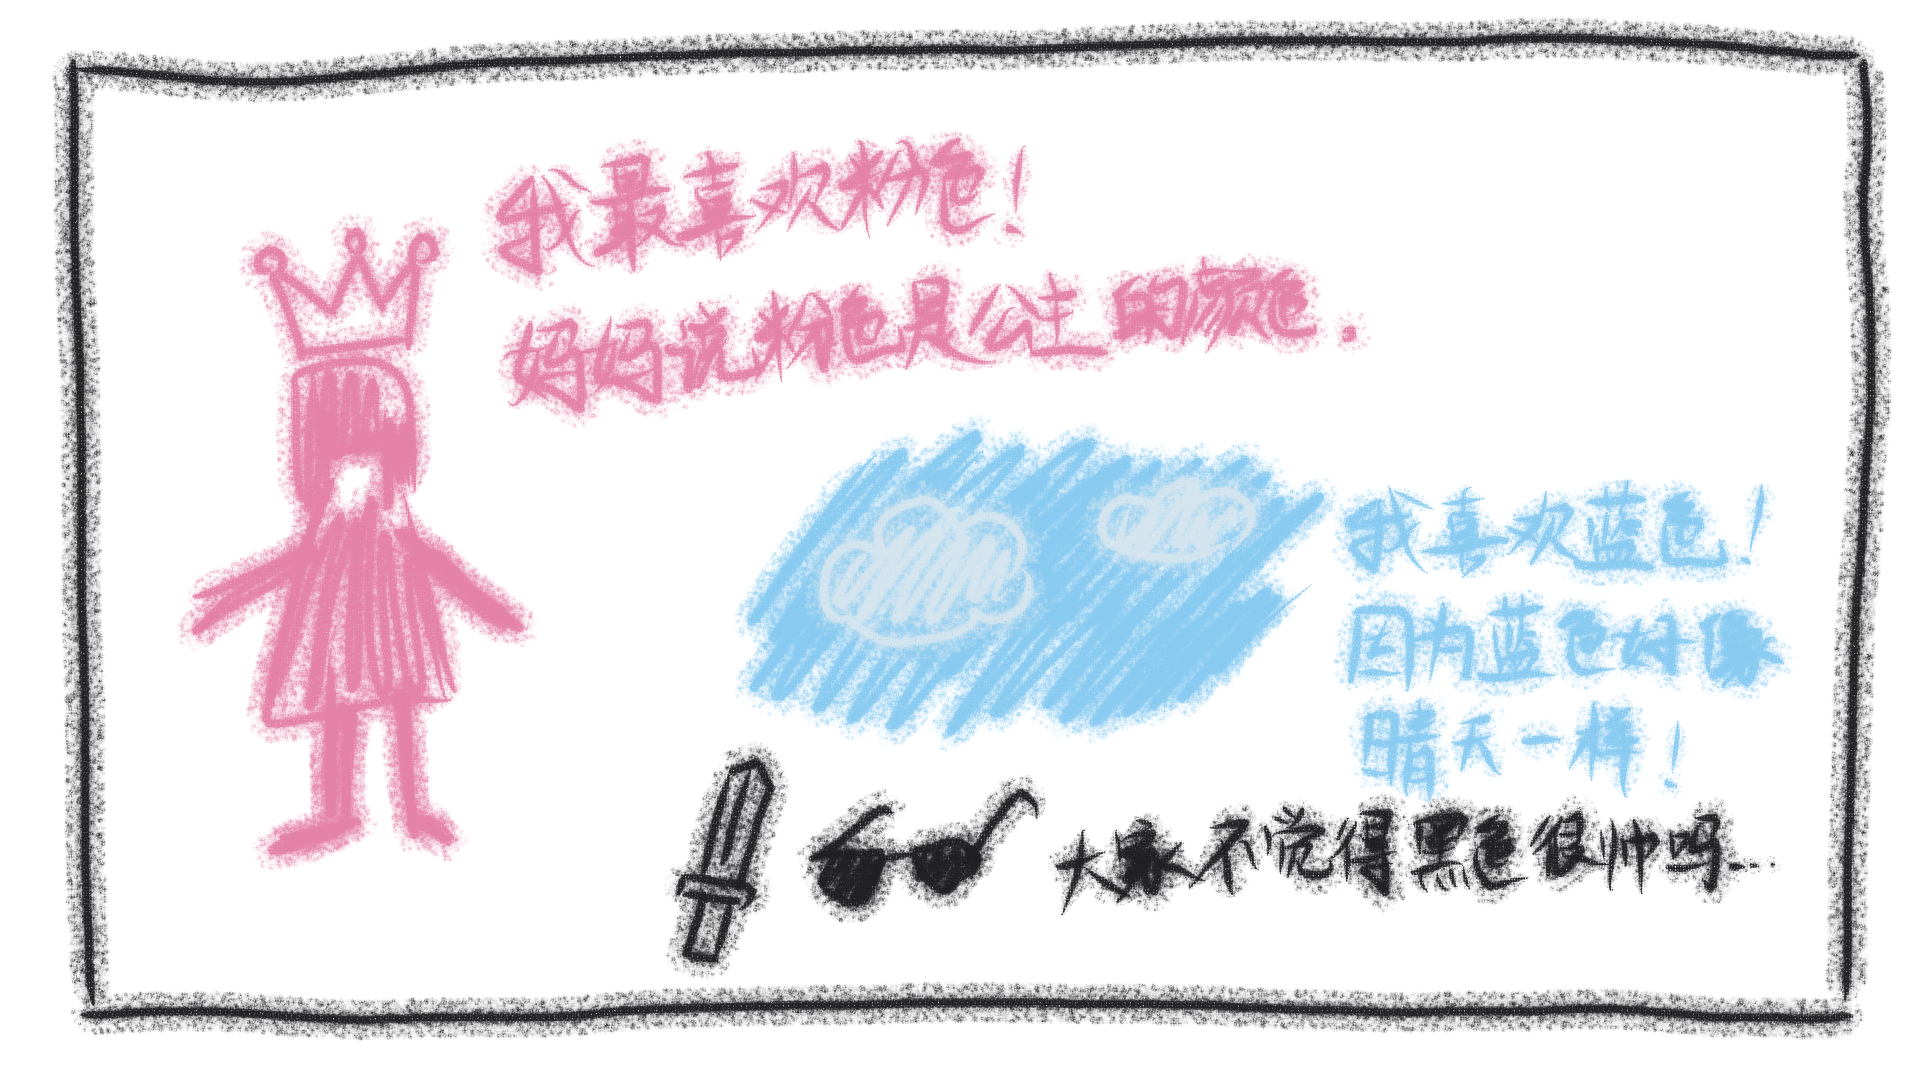 我最喜欢粉色!
妈妈说粉色是公主的颜色.
我喜欢蓝色!
因为蓝色好像
晴天一样!
大家不觉得黑色很帅吗...